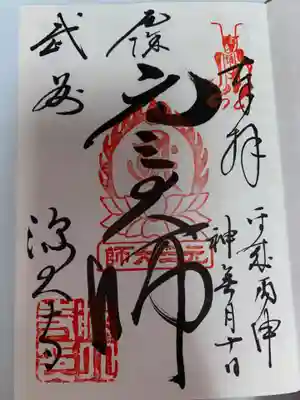 奉拝
平成丙申
神無月十日
厄除
元三大師
元三大師
武
深大寺